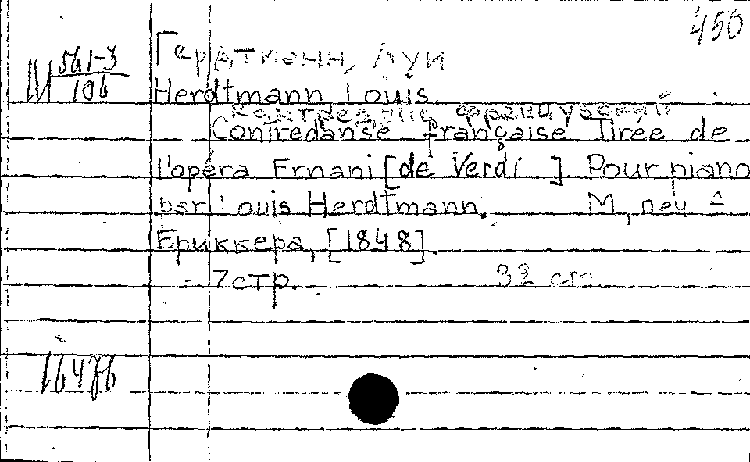 450
М 561-3/106
Гердтманн, Луи
Herdtmann Louis.
Контреданс французский
Contredanse française Tirée de
l'opéra Ernani [de Verdi] Pour piano
par Louis Herdtmann. М, печ
Ериккера, [1848].
- 7 стр. 32 см.
16476